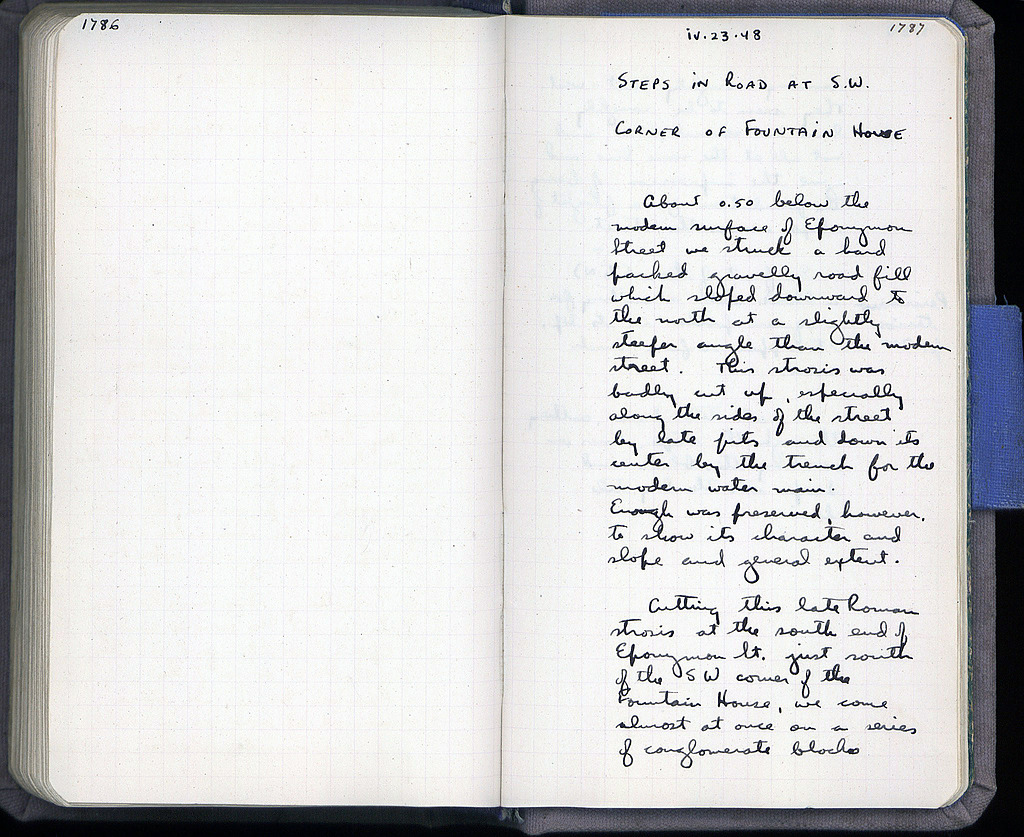 1786
1787
iv.23.48
STEPS IN ROAD AT S.W.
CORNER OF FOUNTAIN HOUSE
About 0.50 below the
modern surface of Eponymon
Street we struck a hard
packed gravelly road fill
which sloped downward to
the north at a slightly
steeper angle than the modern
street. This strosis was
badly cut up, especially
along the sides of the street
by late pits and down its
center by the trench for the
modern water main.
Enough was preserved, however,
to show its character and
slope and general extent.
Cutting this late Roman
strosis at the south end of
Eponymon St. just south
of the SW corner of the
Fountain House, we come
almost at once on a series
of conglomerate blocks